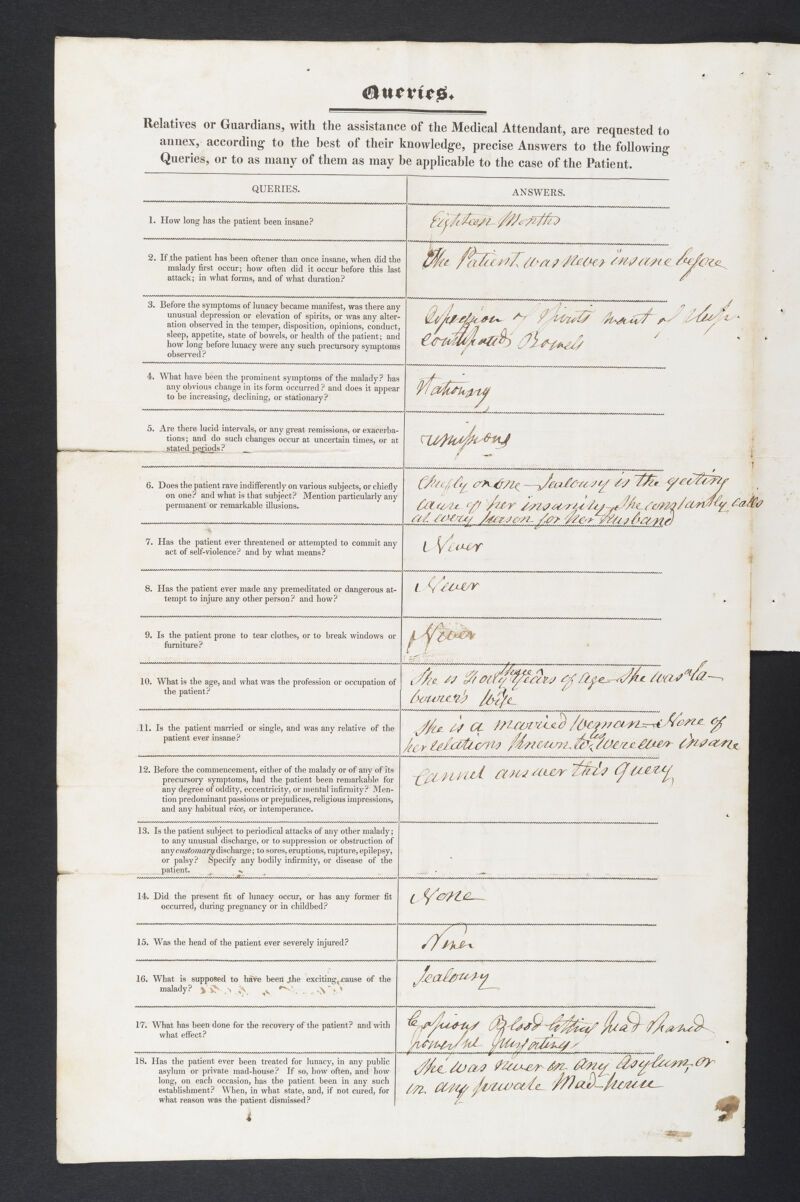 Queries.
Relatives or Guardians, with the assistance of the Medical Attendant, are requested to
annex, according to the best of their knowledge, precise Answers to the following
Queries, or to as many of them as may be applicable to the case of the Patient.
QUERIES.
ANSWERS.
1. How long has the patient been insane?
Eighteen Months
2. If the patient has been oftener than once insane, when did the
malady first occur; how often did it occur before this last
attack; in what forms, and of what duration?
The Patient was never insane before
3. Before the symptoms of lunacy became manifest, was there any
unusual depression or elevation of spirits, or was any alter-
ation observed in the temper, disposition, opinions, conduct,
sleep, appetite, state of bowels, or health of the patient; and
how long before lunacy were any such precursory symptoms
observed?
of Spirits want of sleep
Bowels
4. What have been the prominent symptoms of the malady? has
any obvious change in its form occurred? and does it appear
to be increasing, declining, or stationary?
Stationary
5. Are there lucid intervals, or any great remissions, or exacerba-
tions; and do such changes occur at uncertain times, or at
stated periods?
remissions
6. Does the patient rave indifferently on various subjects, or chiefly
on one? and what is that subject? Mention particularly any
permanent or remarkable illusions.
Chiefly on one – Jealousy is the
cause of her insanity – She constantly calls
at every person for her Husband
7. Has the patient ever threatened or attempted to commit any
act of self-violence? and by what means?
Never
8. Has the patient ever made any premeditated or dangerous at-
tempt to injure any other person? and how?
Never
9. Is the patient prone to tear clothes, or to break windows or
furniture?
Never
10. What is the age, and what was the profession or occupation of
the patient?
She is forty three years of age – She was a la-
bourer's Wife
11. Is the patient married or single, and was any relative of the
patient ever insane?
She is a married Woman – None of
her relations known to us were ever insane
12. Before the commencement, either of the malady or of any of its
precursory symptoms, had the patient been remarkable for
any degree of oddity, eccentricity, or mental infirmity? Men-
tion predominant passions or prejudices, religious impressions,
and any habitual vice, or intemperance.
Cannot answer this Query
13. Is the patient subject to periodical attacks of any other malady;
to any unusual discharge, or to suppression or obstruction of
any customary discharge; to sores, eruptions, rupture, epilepsy,
or palsy? Specify any bodily infirmity, or disease of the
patient.
14. Did the present fit of lunacy occur, or has any former fit
occurred, during pregnancy or in childbed?
None
15. Was the head of the patient ever severely injured?
Never
16. What is supposed to have been the exciting cause of the
malady?
Jealousy
17. What has been done for the recovery of the patient? and with
what effect?
Copious Blood letting head shaved
powerful purgatives
18. Has the patient ever been treated for lunacy, in any public
asylum or private mad-house? If so, how often, and how
long, on each occasion, has the patient been in any such
establishment? When, in what state, and, if not cured, for
what reason was the patient dismissed?
She was never in any Asylum, or
in any private Mad-house